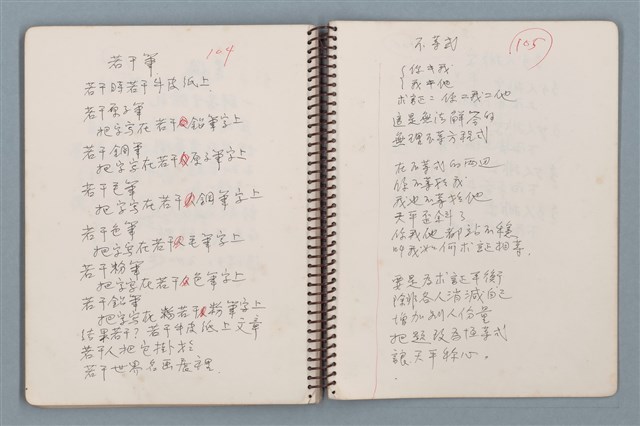 104
若干筆
若干時若干牛皮紙上
若干原子筆
把字写在若干鉛筆字上
若干鋼筆
把字写在若干原子筆字上
若干毛筆
把字写在若干鋼筆字上
若干色筆
把字写在若干毛筆字上
若干粉筆
把字写在若干色筆字上
若干鉛筆
把字写在若干粉筆字上
結果若干?若干牛皮紙上文章
若干人把它掛於
若干世界名画廊裡
105
不等式
你 我
我 他
求証:你=我=他
這是無法解答的
無理不等方程式
在不等式的兩边
你不等於我
我也不等於他
天平歪斜了
你我他都站不穩
叫我如何求証相等.
要是為求証平衡
除非各人消減自己
增加別人份量
把題改為恆等式
讓天平称心。